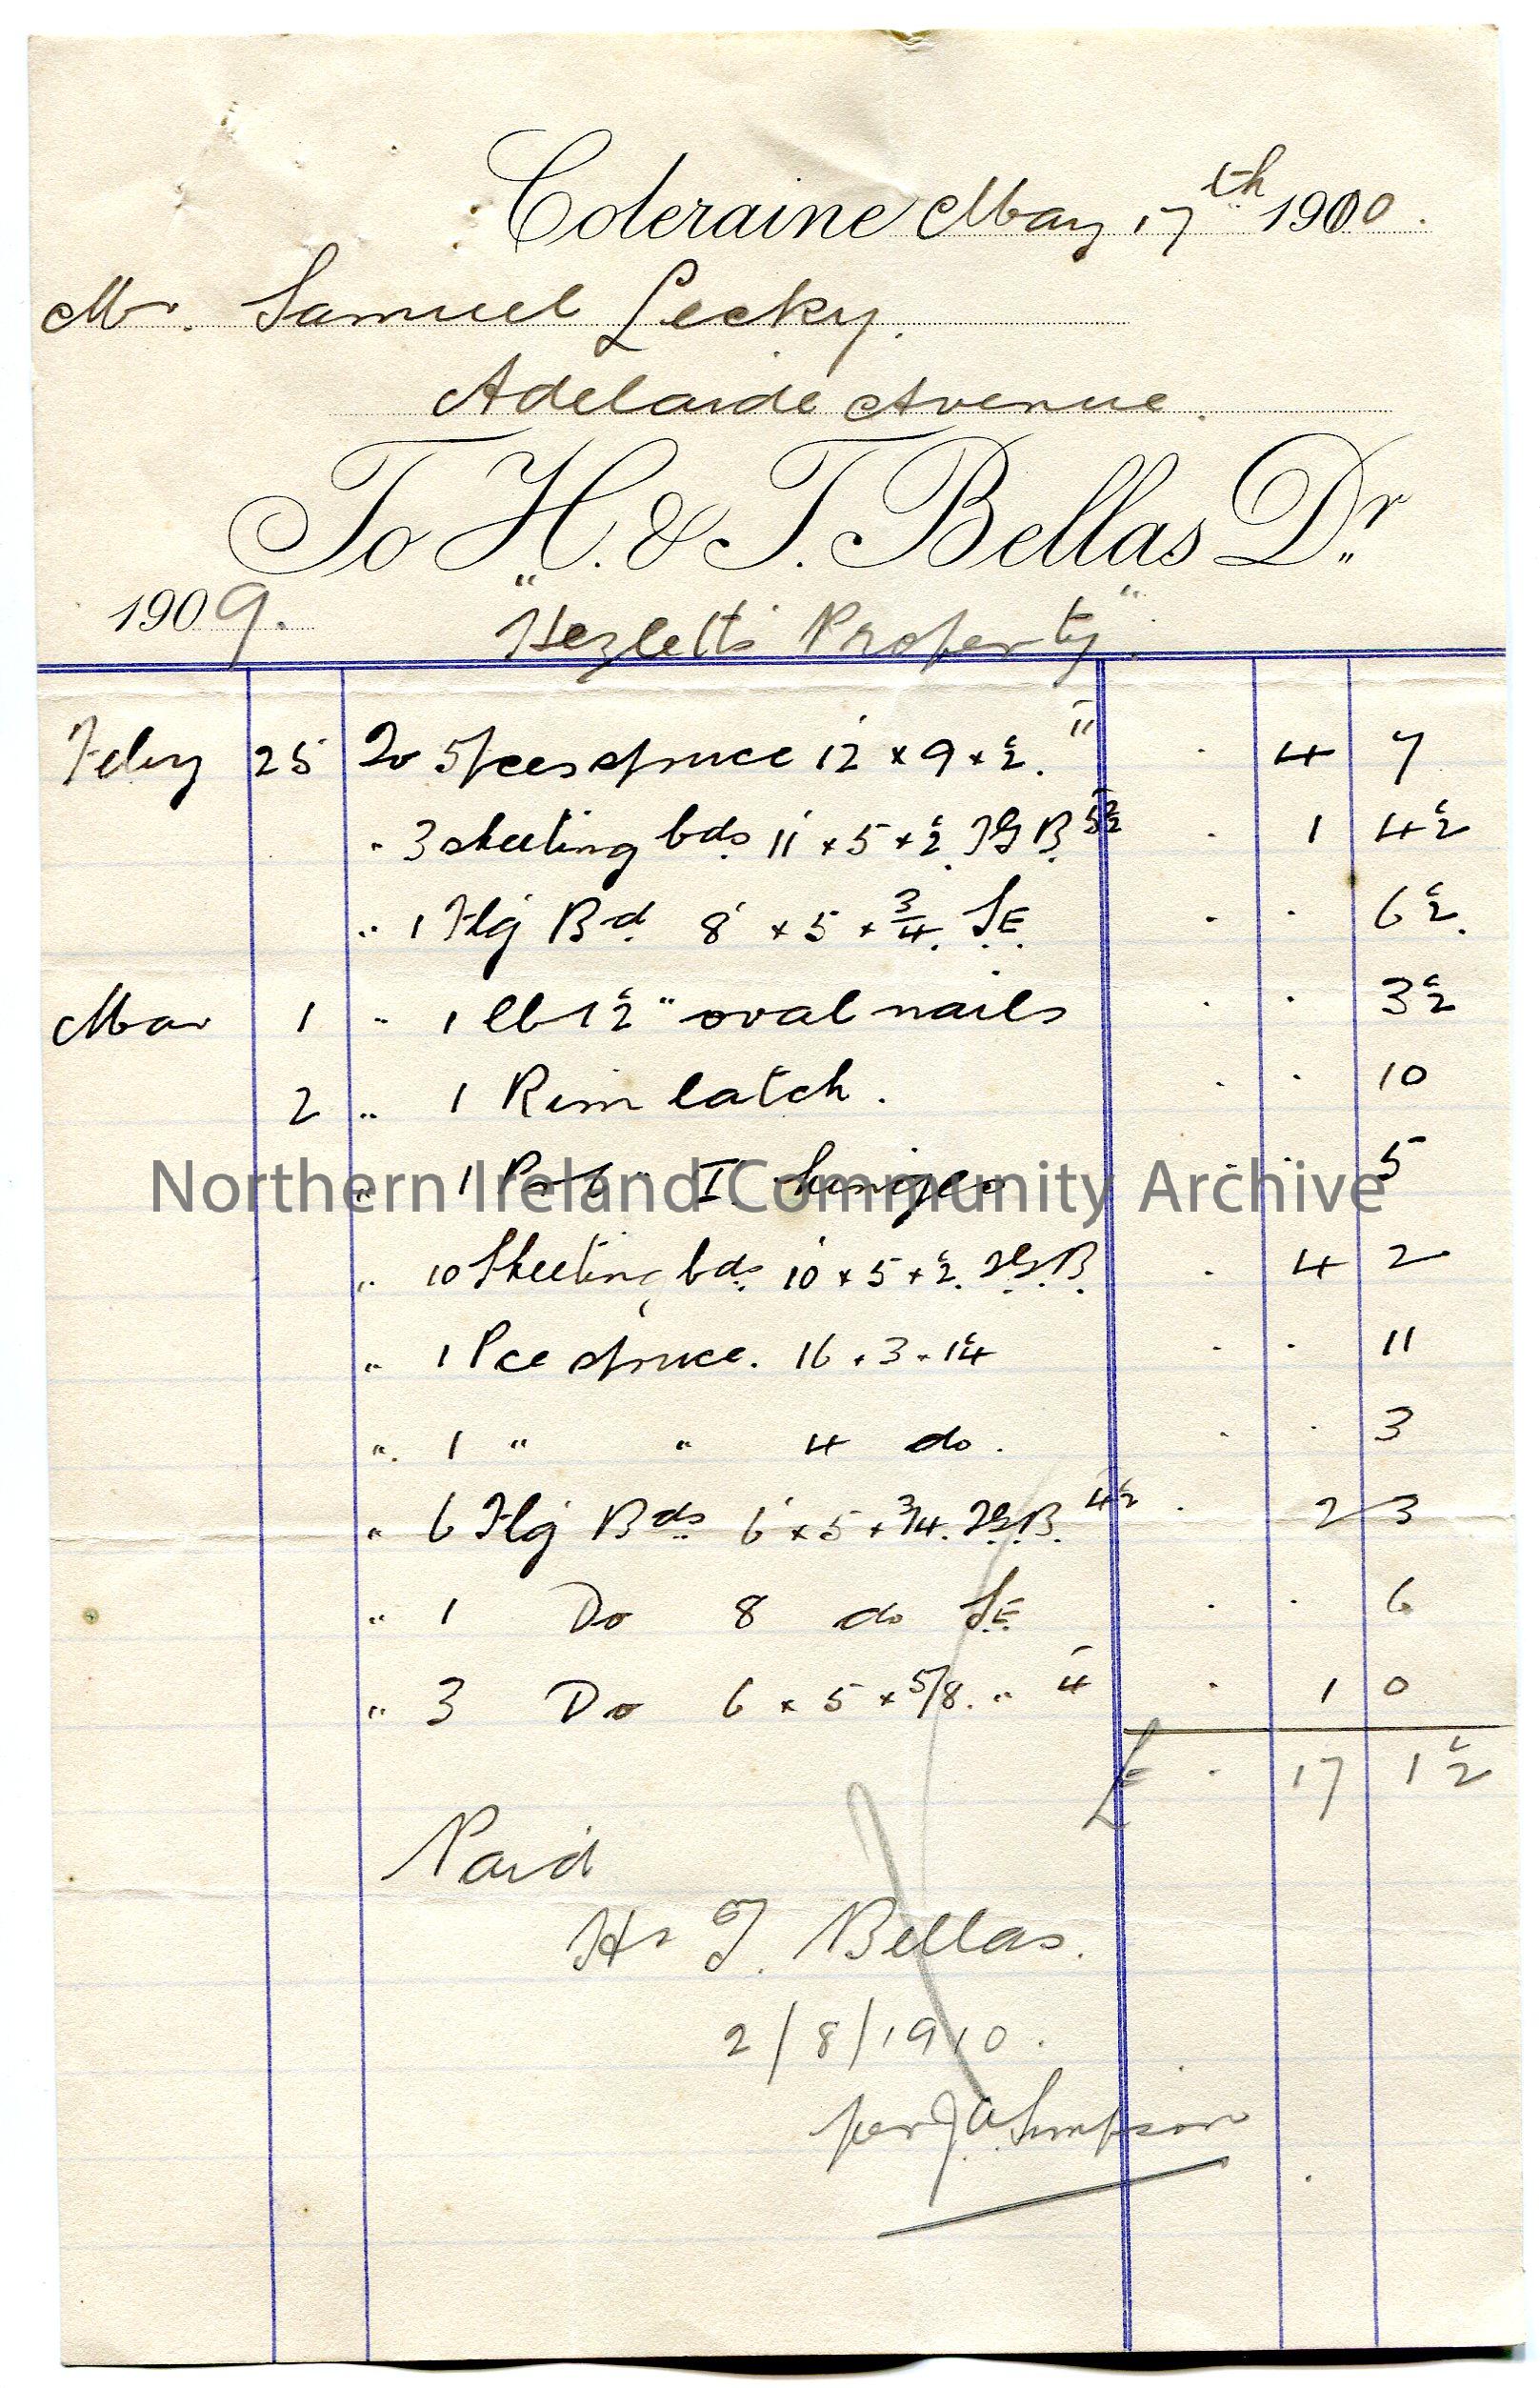 Coleraine May 17th 1910.
Mr. Samuel Lecky.
Adelaide Avenue.
To H. & T. Bellas Dr
1909. "Hezletts Property".
Feby 25 To 5 pces spruce 12' × 9 × ½. 11 . 4 7
" 3 sheeting bds. 11' × 5 × ½. TGB. 5½ . 1 4½
" 1 Flg Bd. 8' × 5 × 3/4. S.E. . . 6½.
Mar 1 " 1 lb 1½" oval nails . . 3½
2 " 1 Rim latch. . . 10
" 1 Pr 6" T. hinges . . 5
" 10 Sheeting bds. 10' × 5 × ½. T.G.B. . 4 2
" 1 Pce spruce. 16 × 3 × 1¼ . . 11
" 1 " " 4 do. . . 3
" 6 Flg Bds 6' × 5 × 3/4. T.G.B. 4½ . 2 3
" 1 Do 8 do S.E. . . 6
" 3 Do 6 × 5 × 5/8. " 4 . 1 0
£ . 17 1½
Paid
H & T. Bellas.
2/8/1910.
per J.A. Simpson
Northern Ireland Community Archive